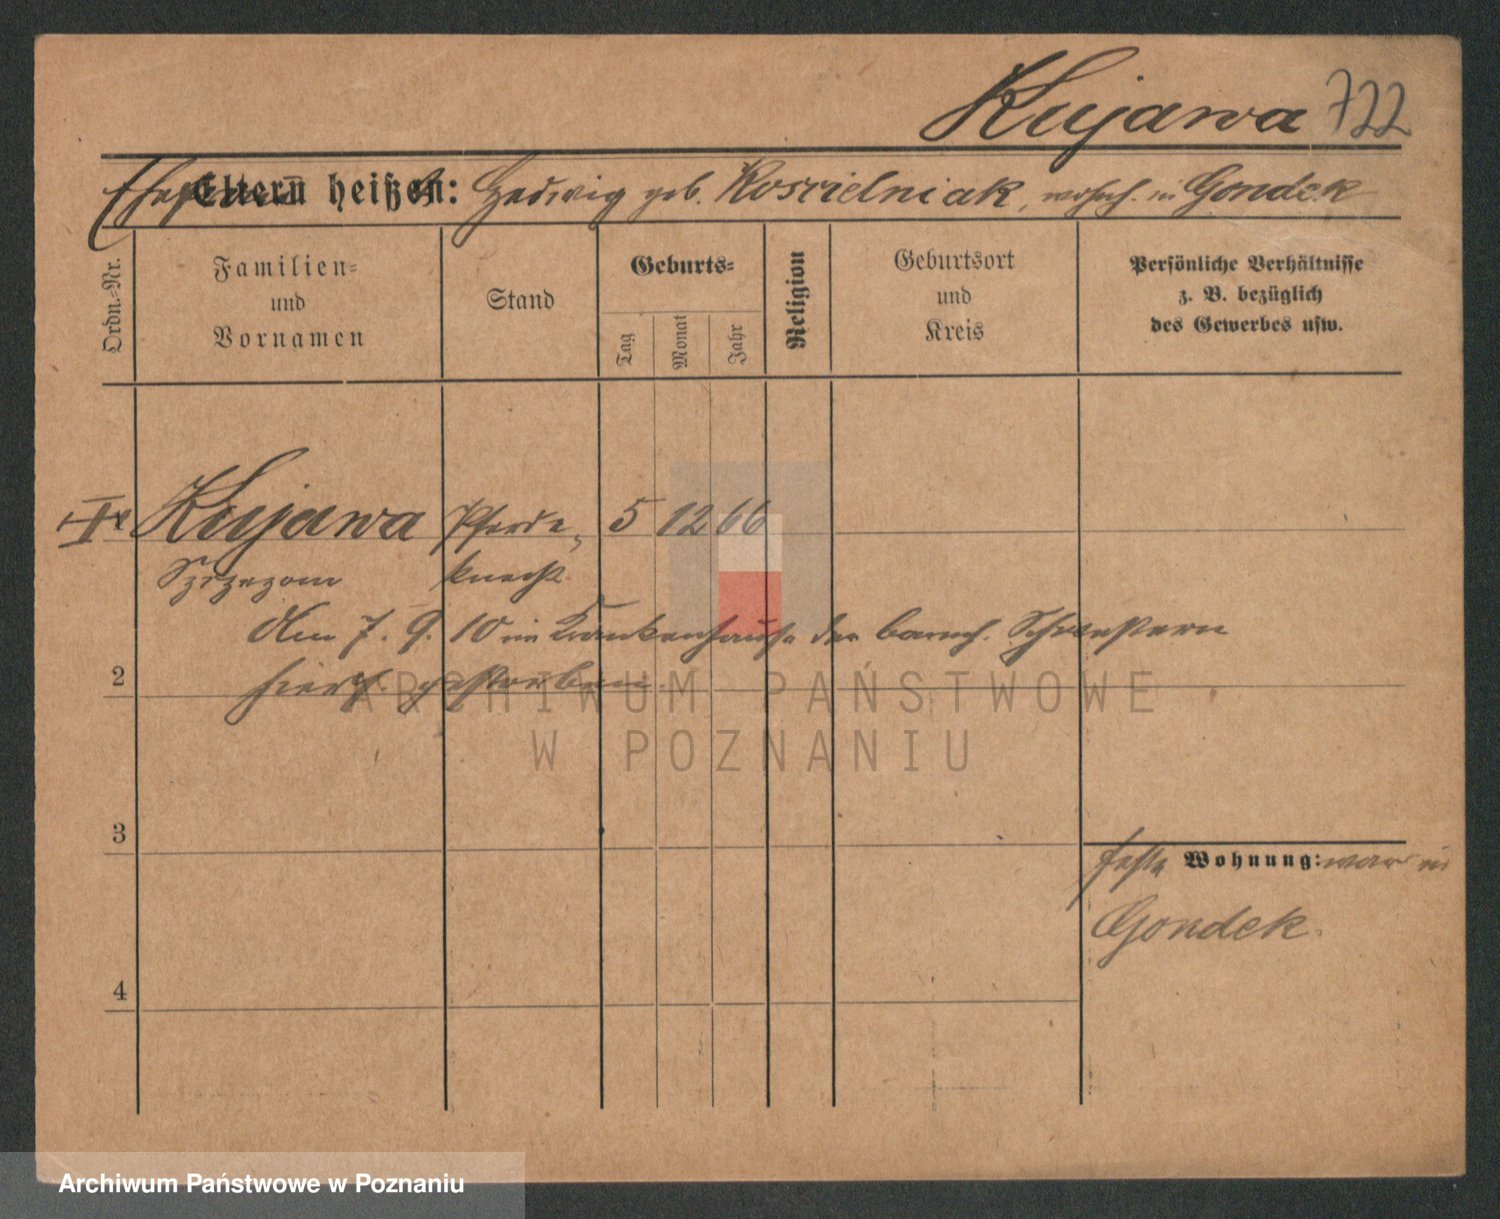 Kujawa 722
Ehefrau Eltern heißen: Hedwig geb. Koscielniak, wohnh. in Gondek
Ordn.-Nr.
Familien-
und
Vornamen
Stand
Geburts-
Tag
Monat
Jahr
Religion
Geburtsort
und
Kreis
Persönliche Verhältnisse
z. B. bezüglich
des Gewerbes usw.
Kujawa Pferde- 5 12 66
knecht
Am 7. 9. 10 im Krankenhause der barmh. Schwestern
2 hiers. gestorben.
3
feste Wohnung: war in
Gondek.
4
ARCHIWUM PAŃSTWOWE
W POZNANIU
Archiwum Państwowe w Poznaniu